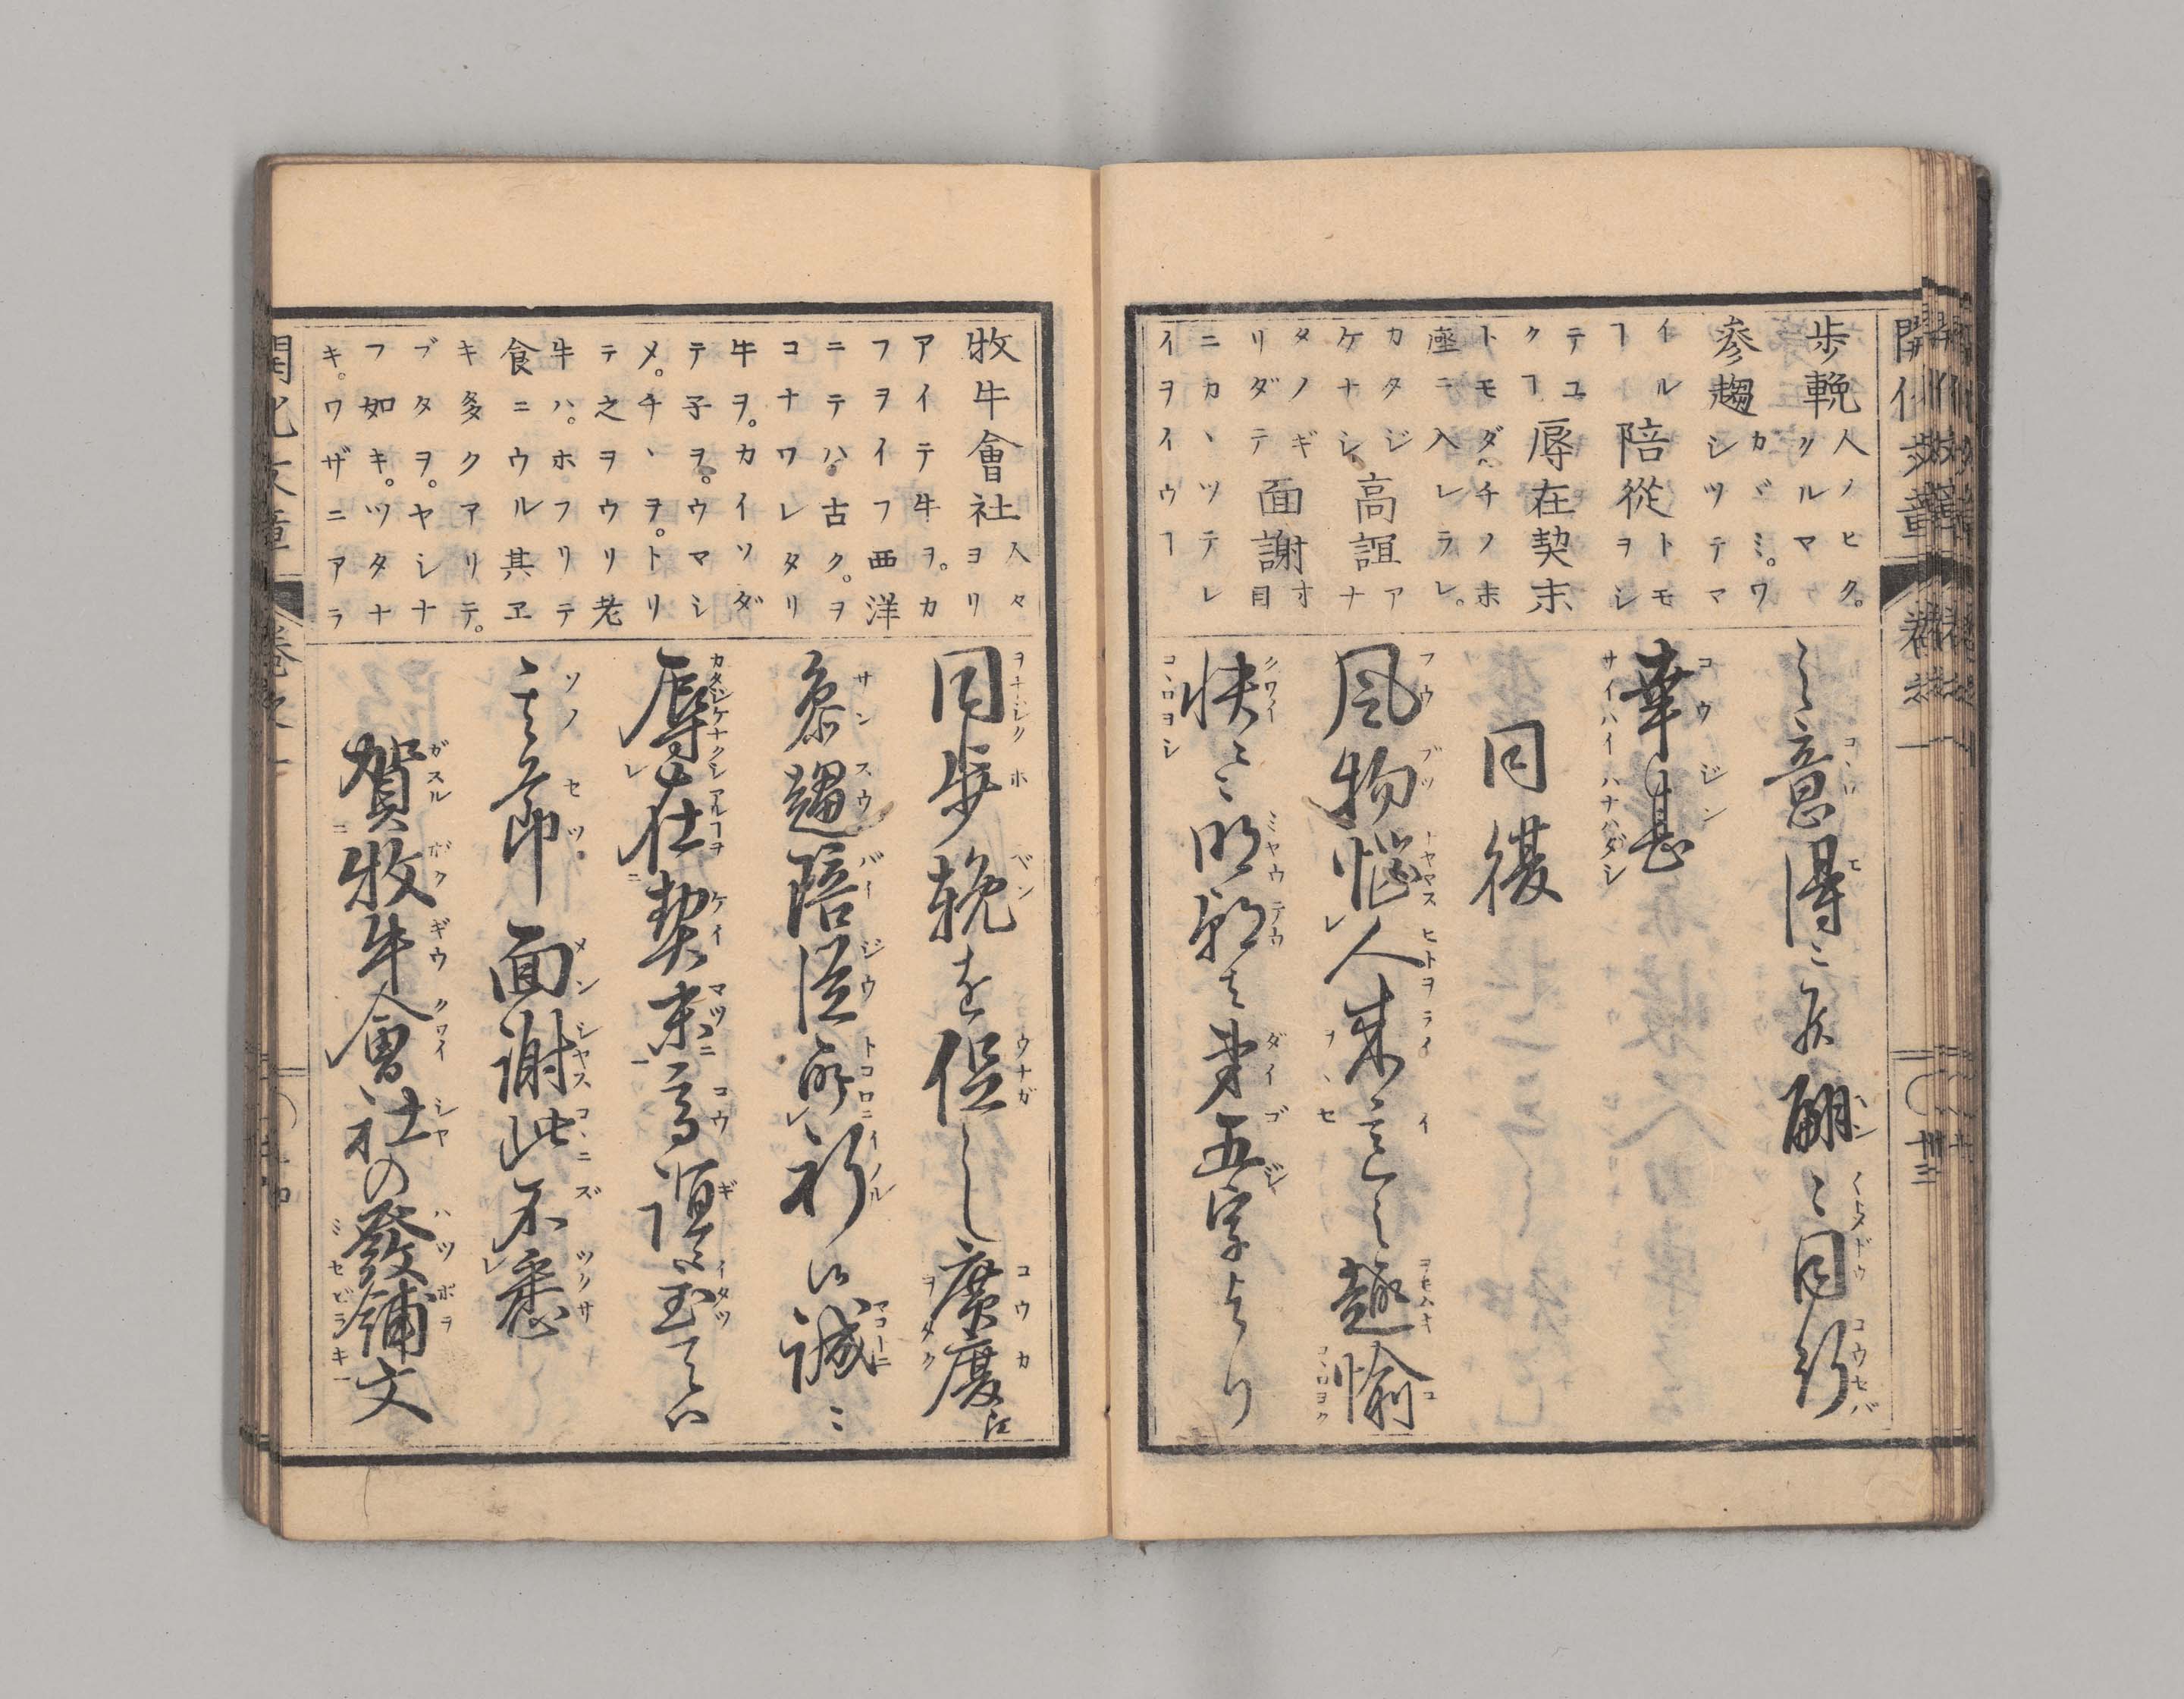 開化文章
卷之一
三
歩輓人ノヒク。クルマ
參趨カヾミ。ワシツテマ
イルヿ陪從トモヲシ
テユクヿ辱在契末
トモダチノ末座ニ入レラレ。
カタジケナシ、高誼アナ
タノギリダテ面謝オ目
ニカヽツテレイヲイウヿ
之意得ニ候翩々同行
幸甚
同復
風物悩人来意之趣愉
快々明朝者第五字より
同歩輓を促し廣廈江
参趨陪從所祈候誠ニ
辱在契末高誼之至ニ候
其節面謝此不悉
賀牧牛會社の發鋪文
牧牛會社人々ヨリ
アイテ牛ヲ。カ
フヲイフ西洋
ニテハ。古ク。ヲ
コナワレタリ
牛ヲ。カイソダ
テ子ヲ。ウマシ
メ。チヽヲ。トリ
テ之ヲウリ老
牛ハ。ホフリテ
食ニウル其エ
キ多クアリテ。
ブタヲ。ヤシナ
フ如キ。ツタナ
キ。ワザニアラ
開化文章
卷之一